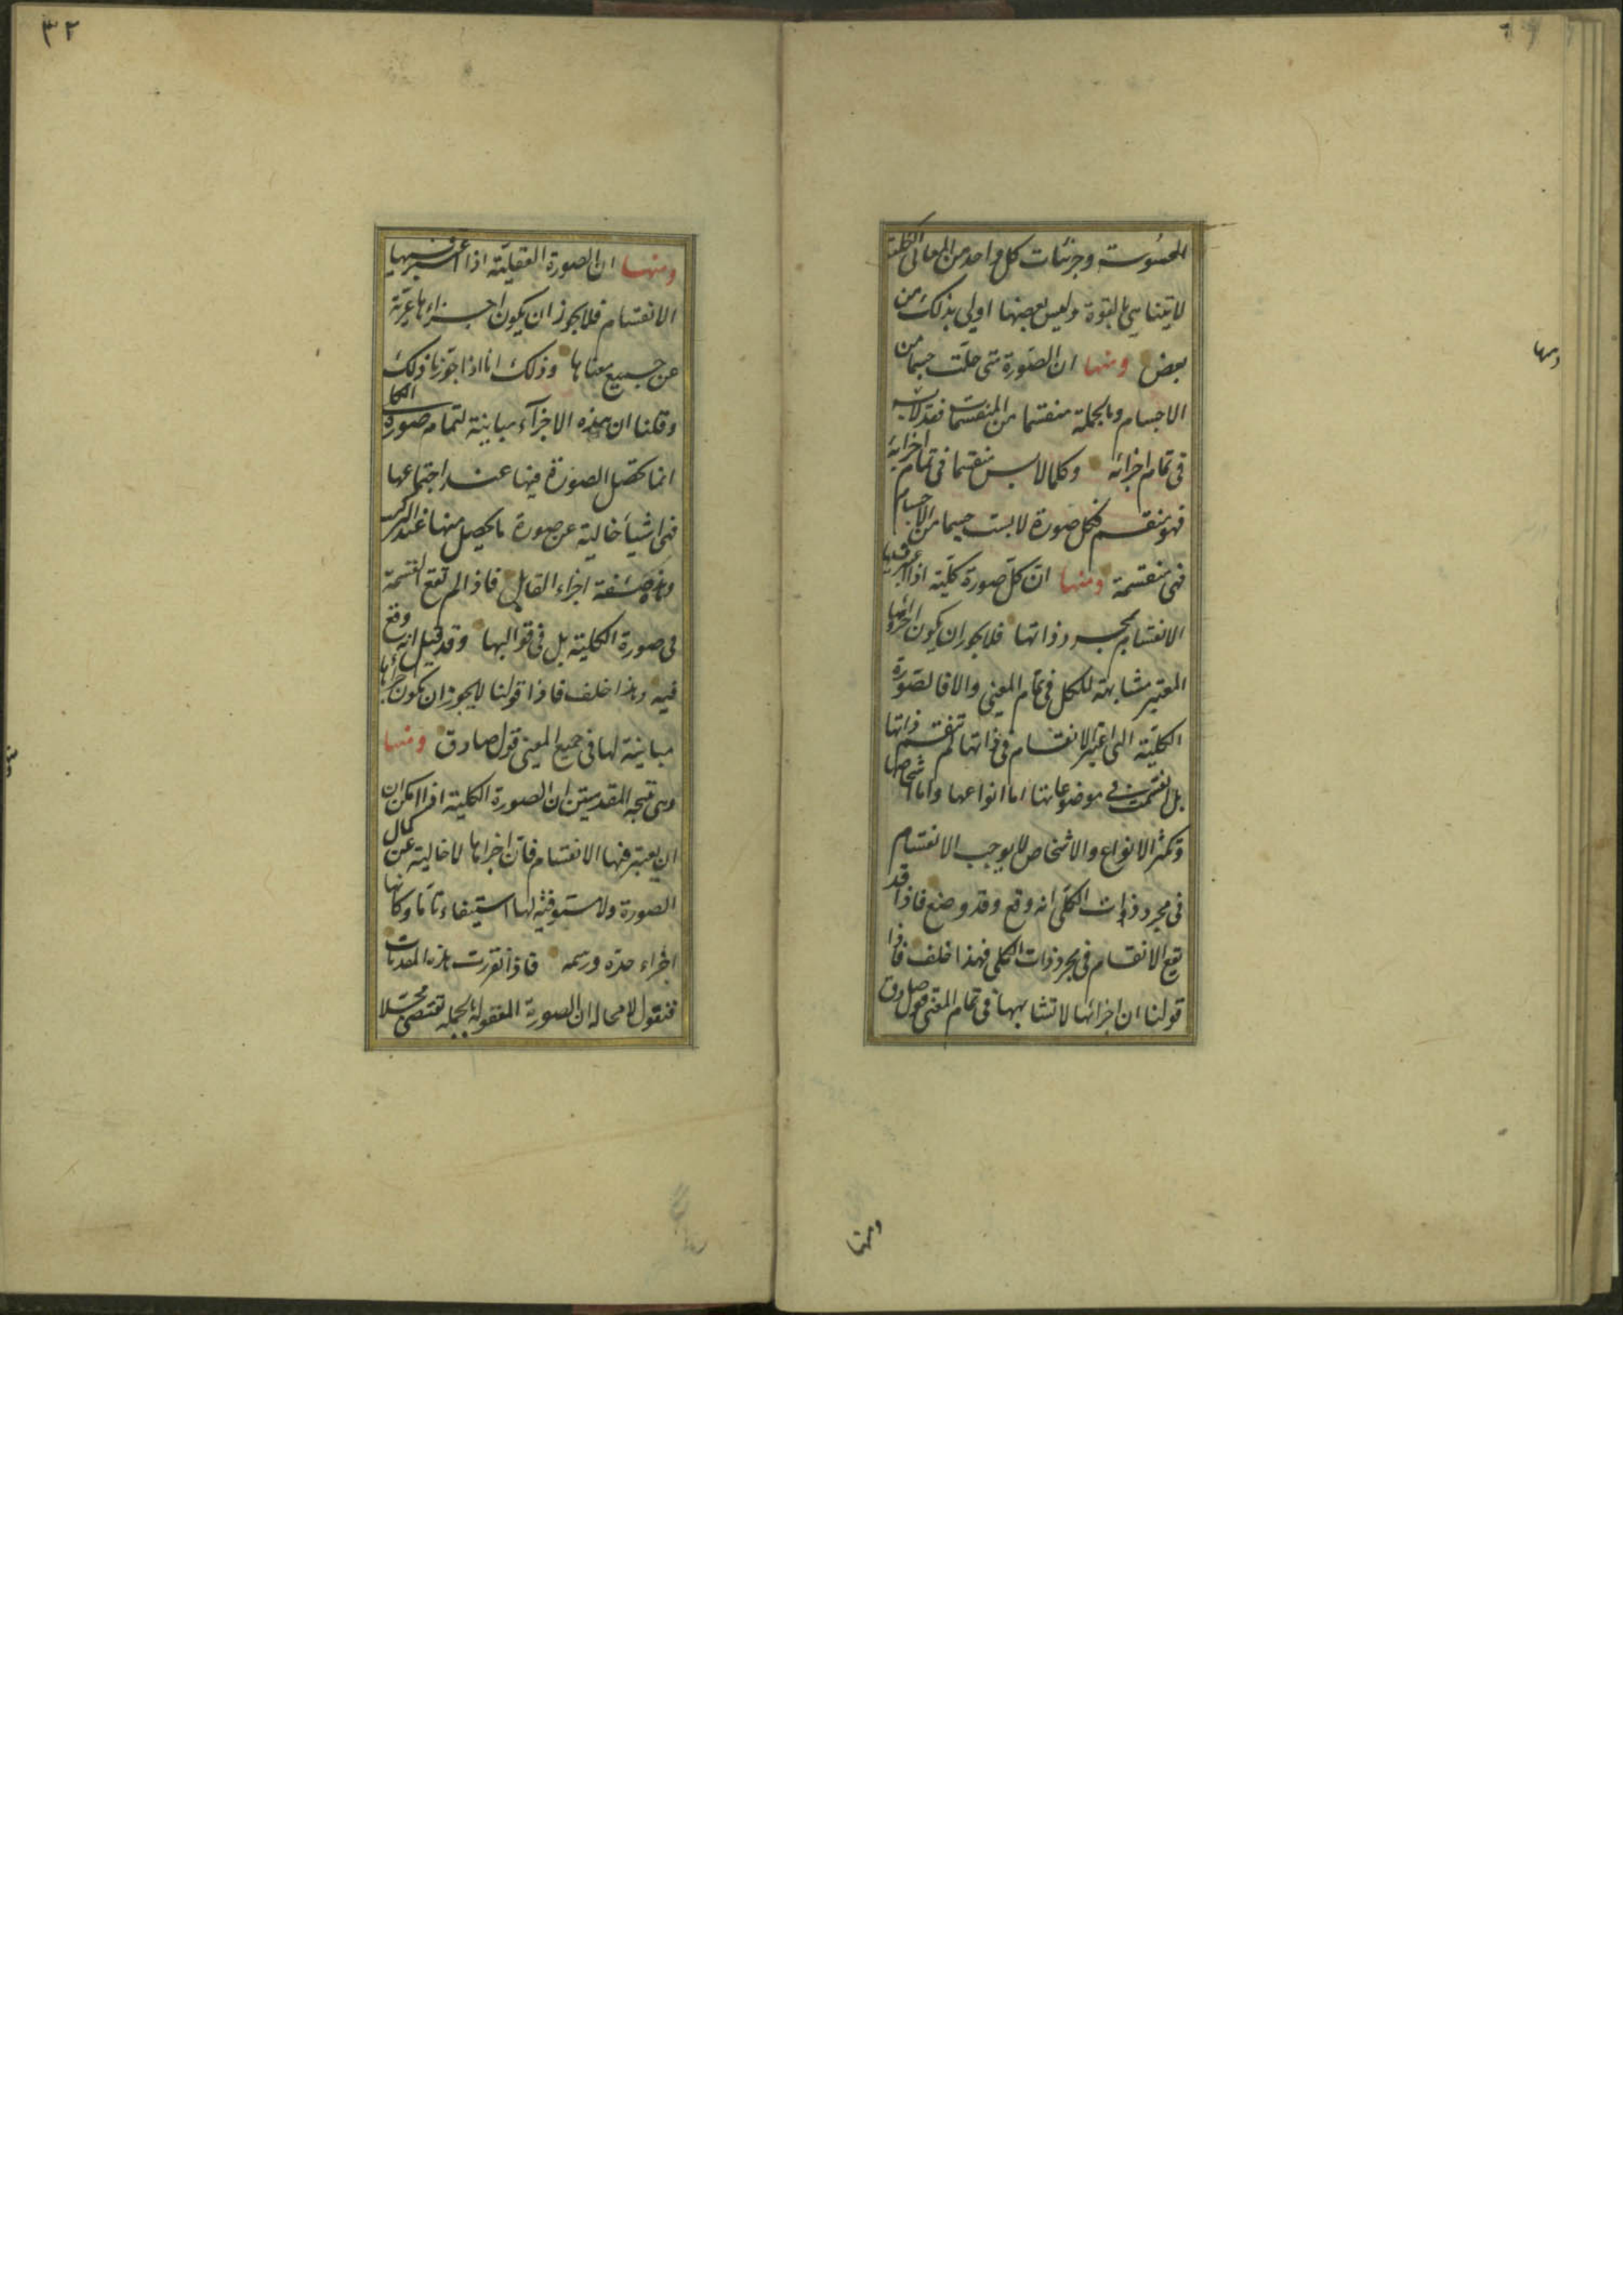 المحسوسة وجزئيات كل واحد من المعانى الكلية
لا يتناهى بالقوة وليس بعضها اولى بذلك من
بعض ومنها ان الصورة متى حلت جسما من
الاجسام وبالجملة منقسما من المنقسمات فقد لابسه
فى تمام اجزائه وكلما لابس منقسما فى تمام اجزايه
فهو منقسم فكل صورة لابست جسما من الاجسام
فهى منقسمة ومنها ان كل صورة كلية اذا اعتبر فيها
الانقسام بمجرد ذاتها فلا يجوز ان يكون اجزاؤها
المعتبر مشابهة للكل فى تمام المعنى والا فالصورة
الكلية التى اعتبر الانقسام فى ذاتها لم تنقسم ذاتها
بل انقسمت فى موضوعاتها اما انواعها واما اشخاصها
وتكثر الانواع والاشخاص لا يوجب الانقسام
فى مجرد ذوات الكلى انه وقع وقد وضع فاذا قد
يقع الانقسام فى مجرد ذوات الكلى فهذا خلف فاذا
قولنا ان اجزائها لا تشابهها فى تمام المعنى قول صادق
ومنها
ومنها
٣٢
ومنها ان الصورة العقلية اذا اعتبر فيها
الانقسام فلا يجوز ان يكون اجزاءها عرية
عن جميع معناها وذلك انا اذا جوزنا ذلك
وقلنا ان هذه الاجزآء مباينة لتمام صورة الكل
انما تحصل الصورة فيها عند اجتماعها
فهى اشيأ خالية عن صورة ما يحصل منها عند التركيب
وهذه صفة اجزاء القابل فاذا لم تقع القسمة
فى صورة الكلية بل فى قوابلها وقد قيل انه وقع
فيه وهذا خلف فاذا قولنا لا يجوز ان يكون اجزاءها
مباينة لها فى جميع المعنى قول صادق ومنها
وهى نتيجة المقدمتين ان الصورة الكلية اذا امكن ان
ان يعتبر فيها الانقسام فان اجزاها لا خالية عن كمال
الصورة ولا مستوفية لها استيفاء تاما وكانها
اجزاء حده ورسمه فاذا تقررت هذه المقدمات
فنقول لا محاله ان الصورة المعقولة بالجمله تقتضى محلا